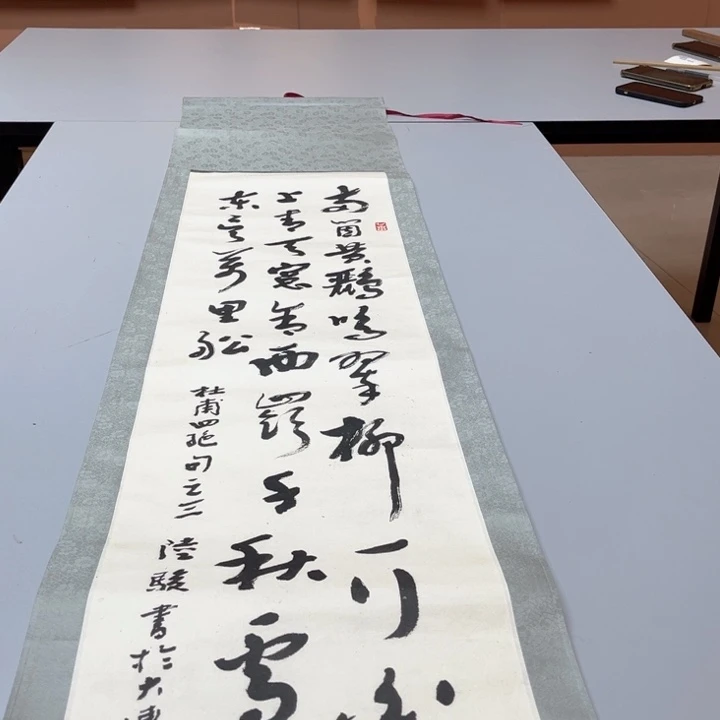 両箇黄鸝鳴翠柳一行
上青天窓含西嶺千秋雪
东吴萬里船
杜甫四絶句之三
陸駿書於大連